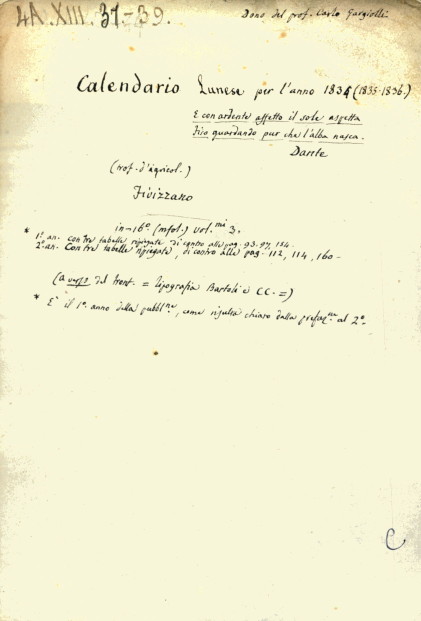 4A.XIII.37-39.
Dono del prof. Carlo Gargiolli
Calendario Lunese per l'anno 1834 (1835-1836.)
E con ardente affetto il sole aspetta
Fiso guardando pur che l'alba nasca.
Dante
(trof. d'agricol.)
Fivizzano
in-16º (mfol.) vol.mi 3.
* 1º an. con tre tabelle ripiegate di contro alle pag. 93. 97, 154.
2º an. Con tre tabelle ripiegate, di contro alle pag. 112, 114, 160-
(a verso del front. = Tipografia Bartoli e CC. =)
* E' il 1º anno della pubbl.ne, come risulta chiaro dalla prefaz.ne al 2º.
C